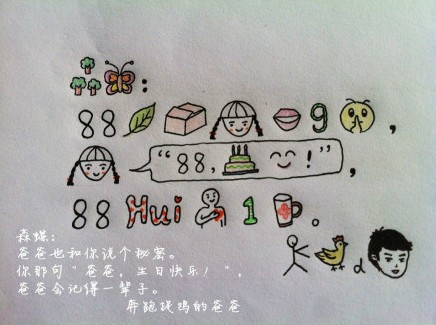 :
88 9 ,
“88, !” ,
88 Hui 1 。
d
森蝶：
爸爸也和你说个秘密。
你那句“爸爸，生日快乐！”，
爸爸会记得一辈子。
奔跑找鸡的爸爸